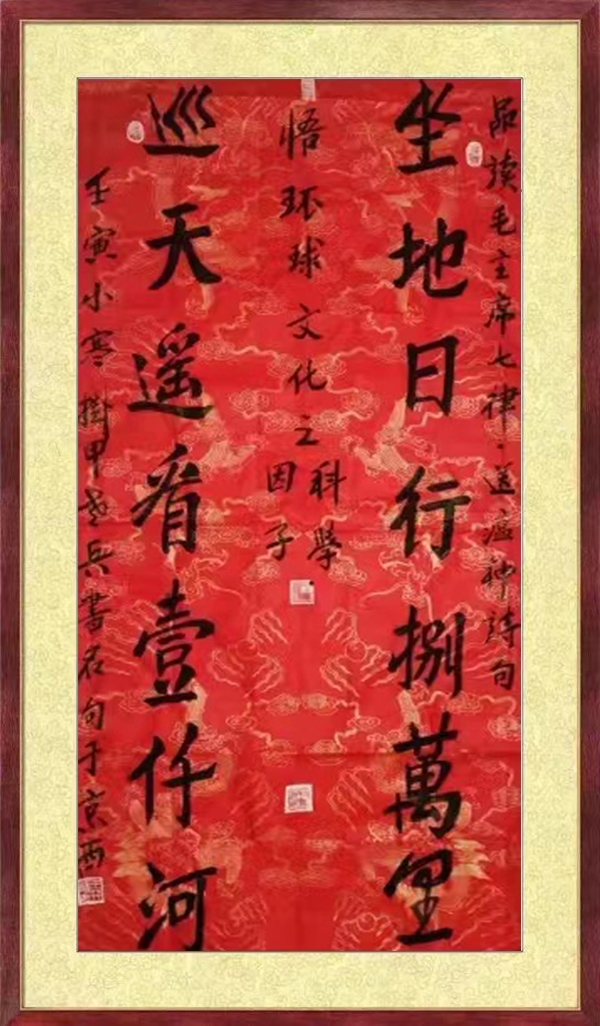 品读毛主席七律·送瘟神诗句
坐地日行捌萬里
悟环球文化之科學因子
巡天遥看壹仟河
壬寅小寒掛甲老兵書名句于京西